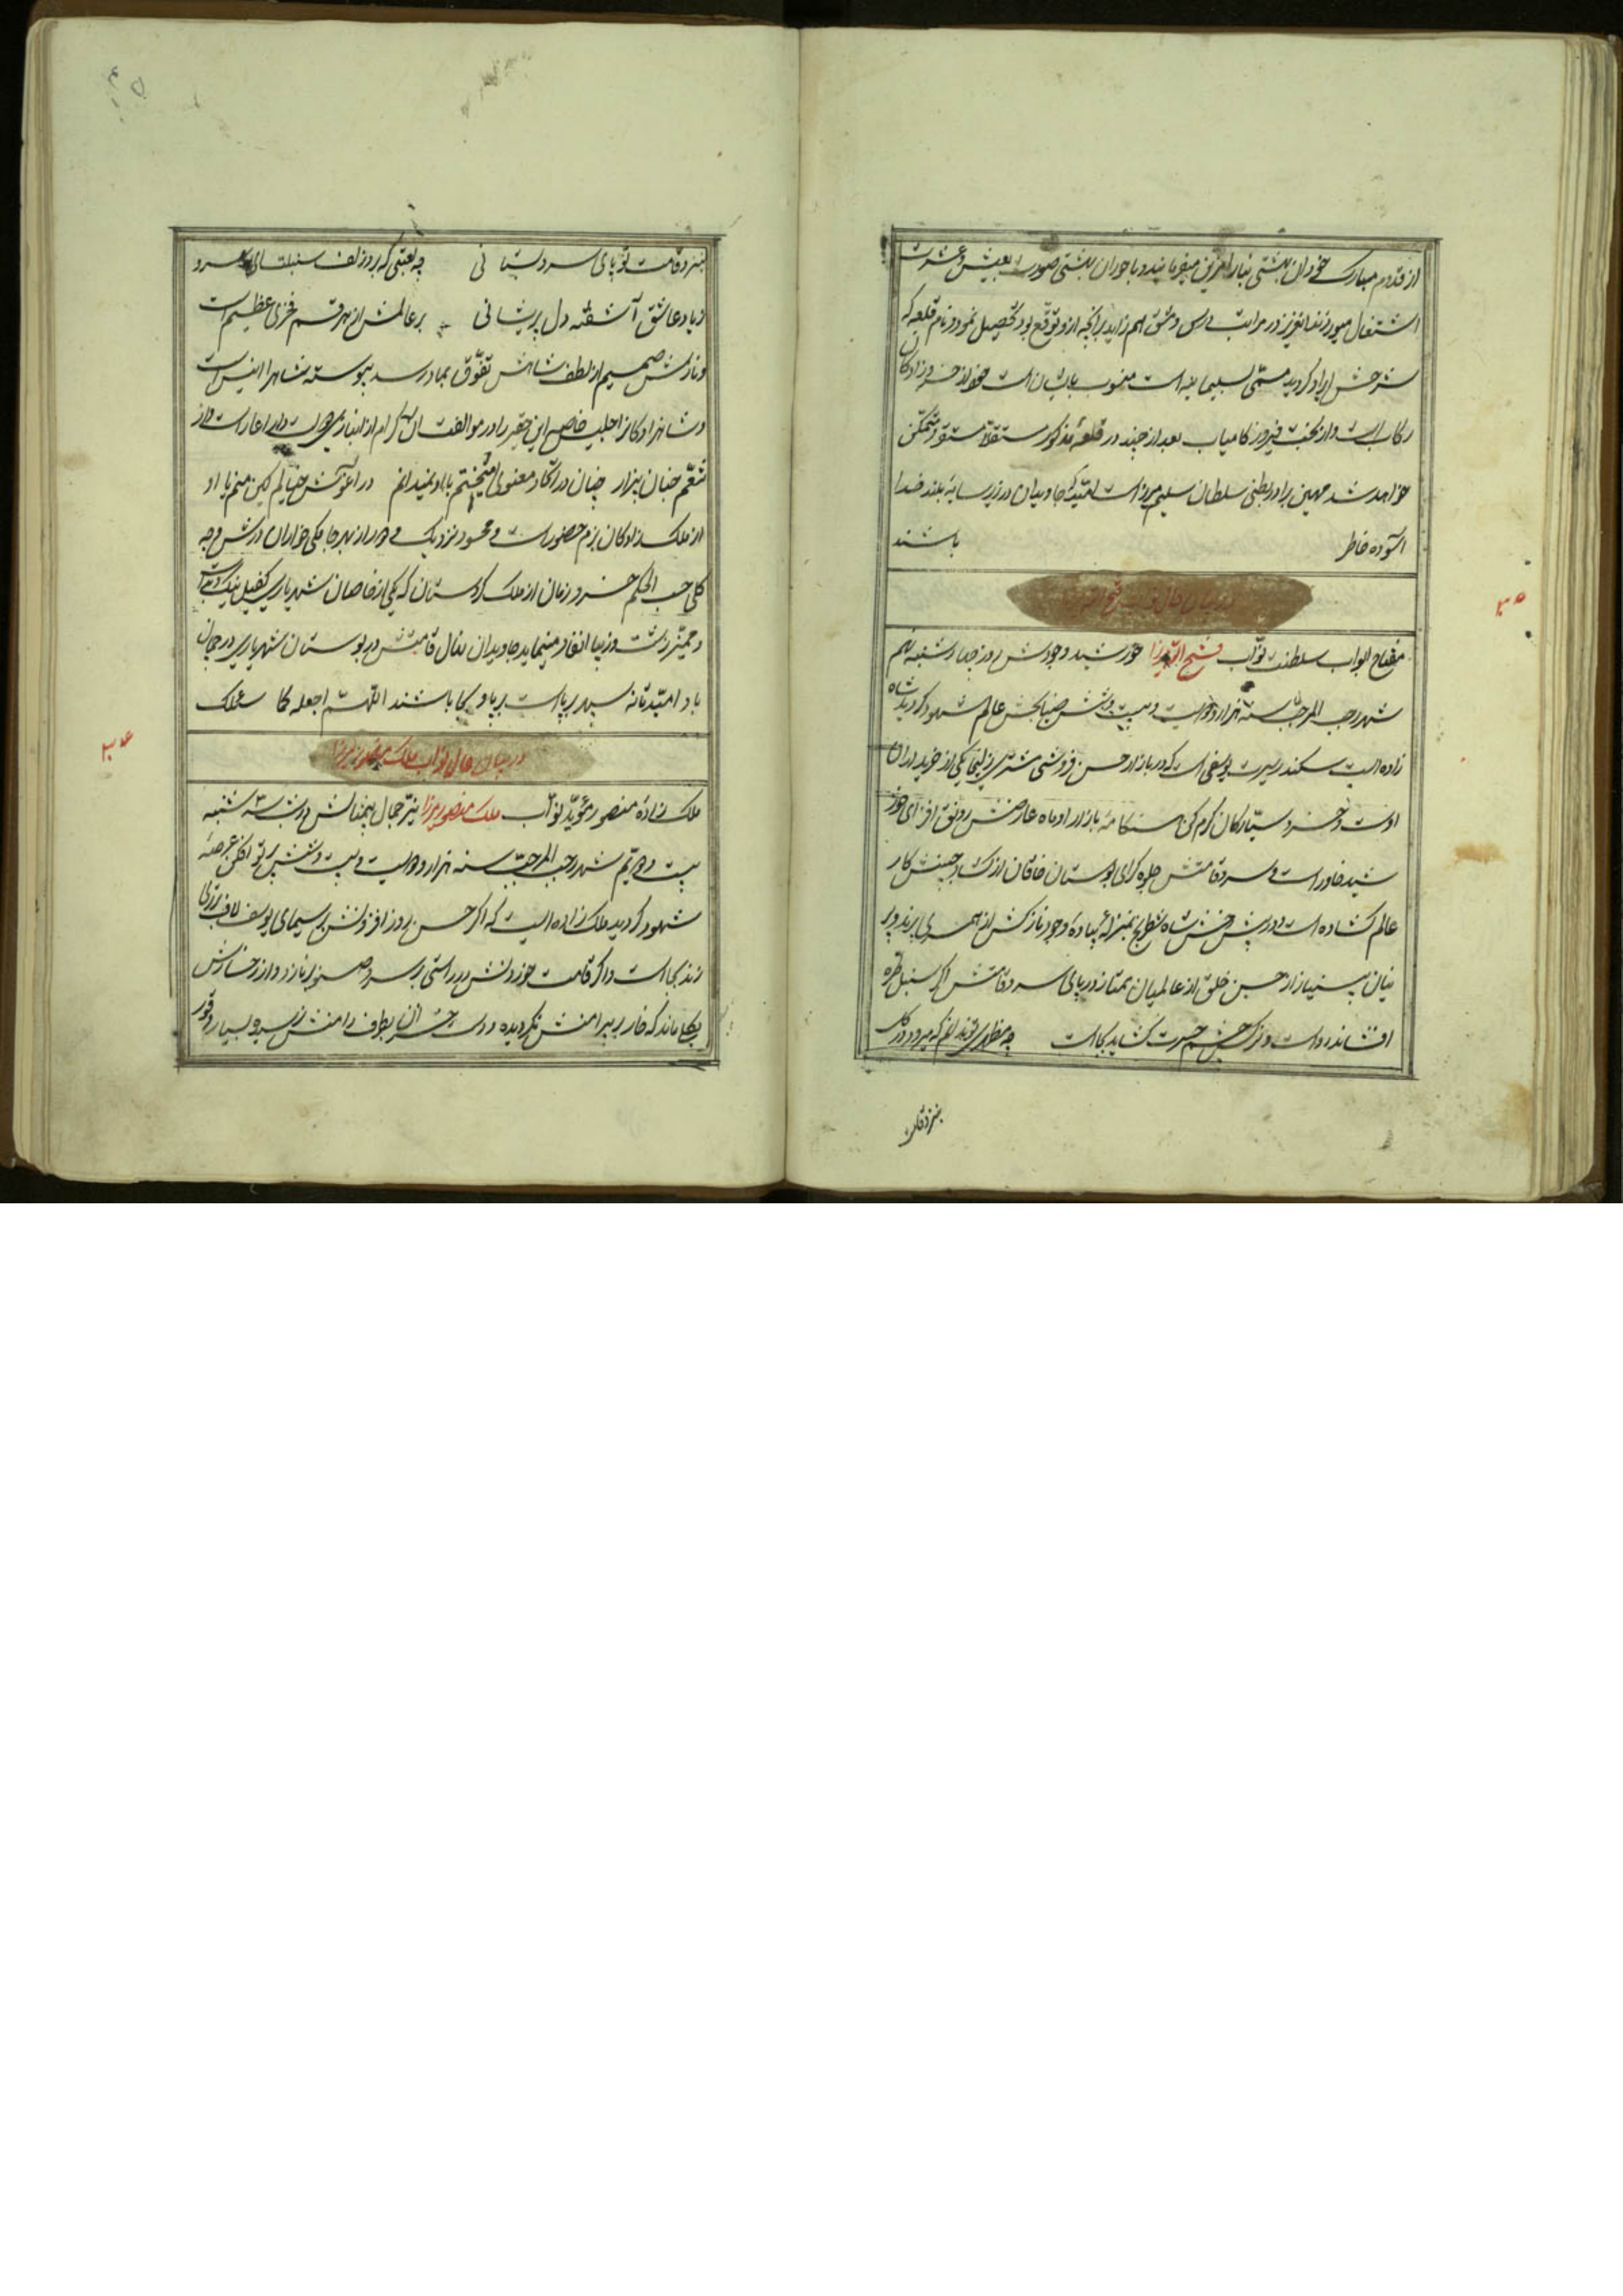 از قدوم مبارک خود آن بهشتی بنیاد را مزین میفرمایند و با حوران بهشتی صورت بعیش و عشرت
اشتغال میورزند انعزیز در مراتب درس و مشق اهم زاید بر آنچه ازو توقع بود تحصیل نمود و نام قلعه که
شرحش ایراد گردید مسمی بسلیمانیه است منسوب بایشان است خود از خسرو زادکان
رکاب است و از بخت فیروز کامیاب بعد از چند در قلعهٔ مذکور مستقلا مستقر و متمکن
خواهد شد مهین برادر بطنی سلطان سلیم میرزا است امید که جاویدان در زیر سایهٔ بلند خدا
آسوده خاطر باشند
در بیان حال نواب فتح الله میرزا
مفتاح ابواب سلطنت نواب فتح الله میرزا خورشید وجودش روز چهارشنبه نهم
شهر رجب المرجب سنه هزار و دویست و بیست و شش ضیابخش عالم شهود گردید شاه
زاده ایست سکندر سیرت یوسفی است که در بازار حسن فروشی مشتری زلیخا یکی از خریداران
اوست و خسرو سیارکان گرم کن هنگامهٔ بازار او ماه عارضش رونق افزای خور
شید خاور است و سرو قامتش جلوه گرای بوستان خاقان از گشاد جبینش کار
عالم گشاده است و در پیش رخش شاه شطرنج بمنزلهٔ پیاده وجود نازکش از همسری پرند و پر
نیان بینیاز از حسن خلق از عالمیان ممتاز در پای سرو قامتش اگر سنبل طره
افشاند رواست و نرگس چشم حسرت گشاید بجاست چه مظهری تو ندانم که میرود در گل
بنزد قامت
بنزد قامت تو پای سرو بستانی چه لعبتی که برد زلف سنبلت ای سرو
ز یاد عاشق آشفته دل پریشانی بر عالمش از بهر قسم فخری عظیم است
و نازش صمیم از لطف شاهش تفوق بماه رسد پیوسته شاهرا انیس است
و شاهزادکانرا جلیس
تنعم جنان بیزار چنان در اتحاد معنوی آمیختم با او نمیدانم در آغوش خیالم کین منم یا او
از ملک زادکان بزم حضور است و محسود نزدیک و دور از بهر جامگی خواران درش وجه
کلی حسب الحکم خسرو زمان از ملک کردستان که یکی از خاصان شهریاری کفیل نیک
و ممیز زشت و زیبا انفاد مینماید جاویدان نهال قامتش در بوستان شهریاری در جهان
باد امید تا نه سپهر برپاست برپا و بجا باشند اللهم اجعله کا سمک
در بیان حال نواب ملک منصور میرزا
ملک زادهٔ منصور مؤید نواب ملک منصور میرزا نیر جمال بیمثالش در شب سه شنبه
بیست و دویم شهر رجب المرجب سنه هزار و دویست و بیست و شش پرتو افکن عرصهٔ
شهود گردید ملک زاده ایست که اگر حسن روز افزونش بر سیمای یوسف لاف برتری
زند بجاست و اگر قامت موزونش در راستی بر سرو و صنوبر بنازد رواز رخسارش
بگل ماند که خار بپیرامنش نگردیده و دست خزان بطرف دامنش نرسیده بسیار وقور
۳۵
۳۴
۳۴